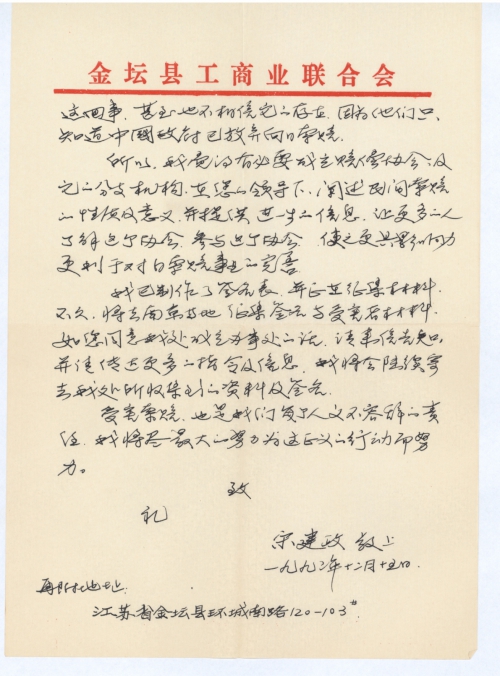 金坛县工商业联合会
这回事，甚至也不相信它的存在，因为他们只
知道中國政府已放弃向日索赔。
所以，我觉得有必要成立赔偿协会，及
它的分支机构，在您的领导下，阐述民间索赔
的性质及意义，并提供进一步的信息，让更多的人
了解这个协会，参与这个协会，使之更具影响力
更利于对日索赔事业的完善。
我已制作了签名表，并正在征集材料，
不久，将去南京等地征集签名与受害者材料，
如您同意我处成立办事处的话，请来信告知，
并请传达更多的指令及信息，我将会陆续寄
去我处所收集到的资料及签名。
受害索赔，也是我们每个人义不容辞的责
任，我将尽最大的努力为这正义的行动而努
力。
致
礼
宋建政 敬上
一九九二年十二月十五日.
再附地址：
江苏省金坛县环城南路120-103#